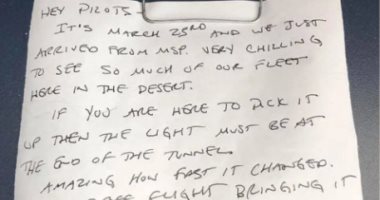 HEY PILOTS-
IT'S MARCH 23RD AND WE JUST
ARRIVED FROM MSP. VERY CHILLING
TO SEE SO MUCH OF OUR FLEET
HERE IN THE DESERT.
IF YOU ARE HERE TO PICK IT
UP THEN THE LIGHT MUST BE AT
THE END OF THE TUNNEL.
AMAZING HOW FAST IT CHANGED.
FLIGHT BRINGING IT